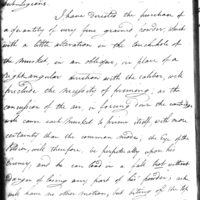 Sub-Legions.
I have directed the purchase of
a quantity of very fine grained powder, which
with a little alteration in the touchhole of
the musket, in an oblique, in place of a
right angular direction with the caliber, will
preclude the necessity of priming, as the
concussion of the air in forcing down the cartridge
will cause each musket to prime itself, with more
certainty than the common mode; the Eye of the
Soldier, will therefore be perpetually upon his
Enemy, and he can load in a full trot without
danger of losing any part of his powder; which
will have no other motion, but biting off the top